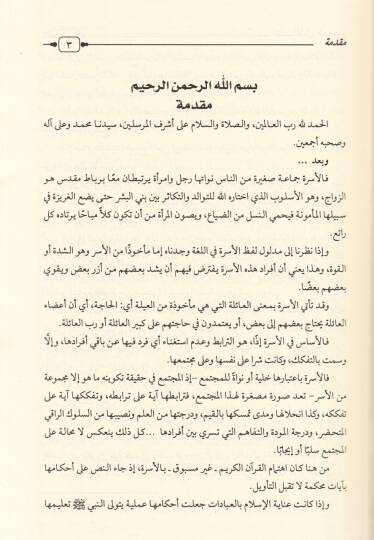 مقدمة
٣
بسم الله الرحمن الرحيم
مقدمة
الحمد لله رب العالمين، والصلاة والسلام على أشرف المرسلين، سيدنا محمد وعلى آله
وصحبه أجمعين.
وبعد ...
فالأسرة جماعة صغيرة من الناس نواتها رجل وامرأة يرتبطان معًا برباط مقدس هو
الزواج، وهو الأسلوب الذي اختاره الله للتوالد والتكاثر بين بني البشر حتى يضع الغريزة في
سبيلها المأمونة فيحمي النسل من الضياع، ويصون المرأة من أن تكون كلأً مباحًا يرتاده كل
راتع.
وإذا نظرنا إلى مدلول لفظ الأسرة في اللغة وجدناه إما مأخوذًا من الأسر وهو الشدة أو
القوة، وهذا يعني أن أفراد هذه الأسرة يفترض فيهم أن يشد بعضهم من أزر بعض ويقوي
بعضهم بعضًا.
وقد تأتي الأسرة بمعنى العائلة التي هي مأخوذة من العيلة أي: الحاجة، أي أن أعضاء
العائلة يحتاج بعضهم إلى بعض، أو يعتمدون في حاجتهم على كبير العائلة أو رب العائلة.
فالأساس في الأسرة إذًا، هو الترابط وعدم استغناء أي فرد فيها عن باقي أفرادها، وإلَّا
وسمت بالتفكك، وكانت شرا على نفسها وعلى مجتمعها.
فالأسرة باعتبارها خلية أو نواةً للمجتمع -إذ المجتمع في حقيقة تكوينه ما هو إلا مجموعة
من الأسر- تعد صورة مصغرة لهذا المجتمع، فترابطها آية على ترابطه، وتفككها آية على
تفككه، وكذا انحلالها ومدى تمسكها بالقيم، ودرجتها من العلم ونصيبها من السلوك الراقي
المتحضر، ودرجة المودة والتفاهم التي تسري بين أفرادها ...كل ذلك ينعكس لا محالة على
المجتمع سلبًا أو إيجابًا.
من هنا كان اهتمام القرآن الكريم - غير مسبوق - بالأسرة، إذ جاء النص على أحكامها
بآيات محكمة لا تقبل التأويل.
وإذا كانت عناية الإسلام بالعبادات جعلت أحكامها عملية يتولى النبي ﷺ تعليمها